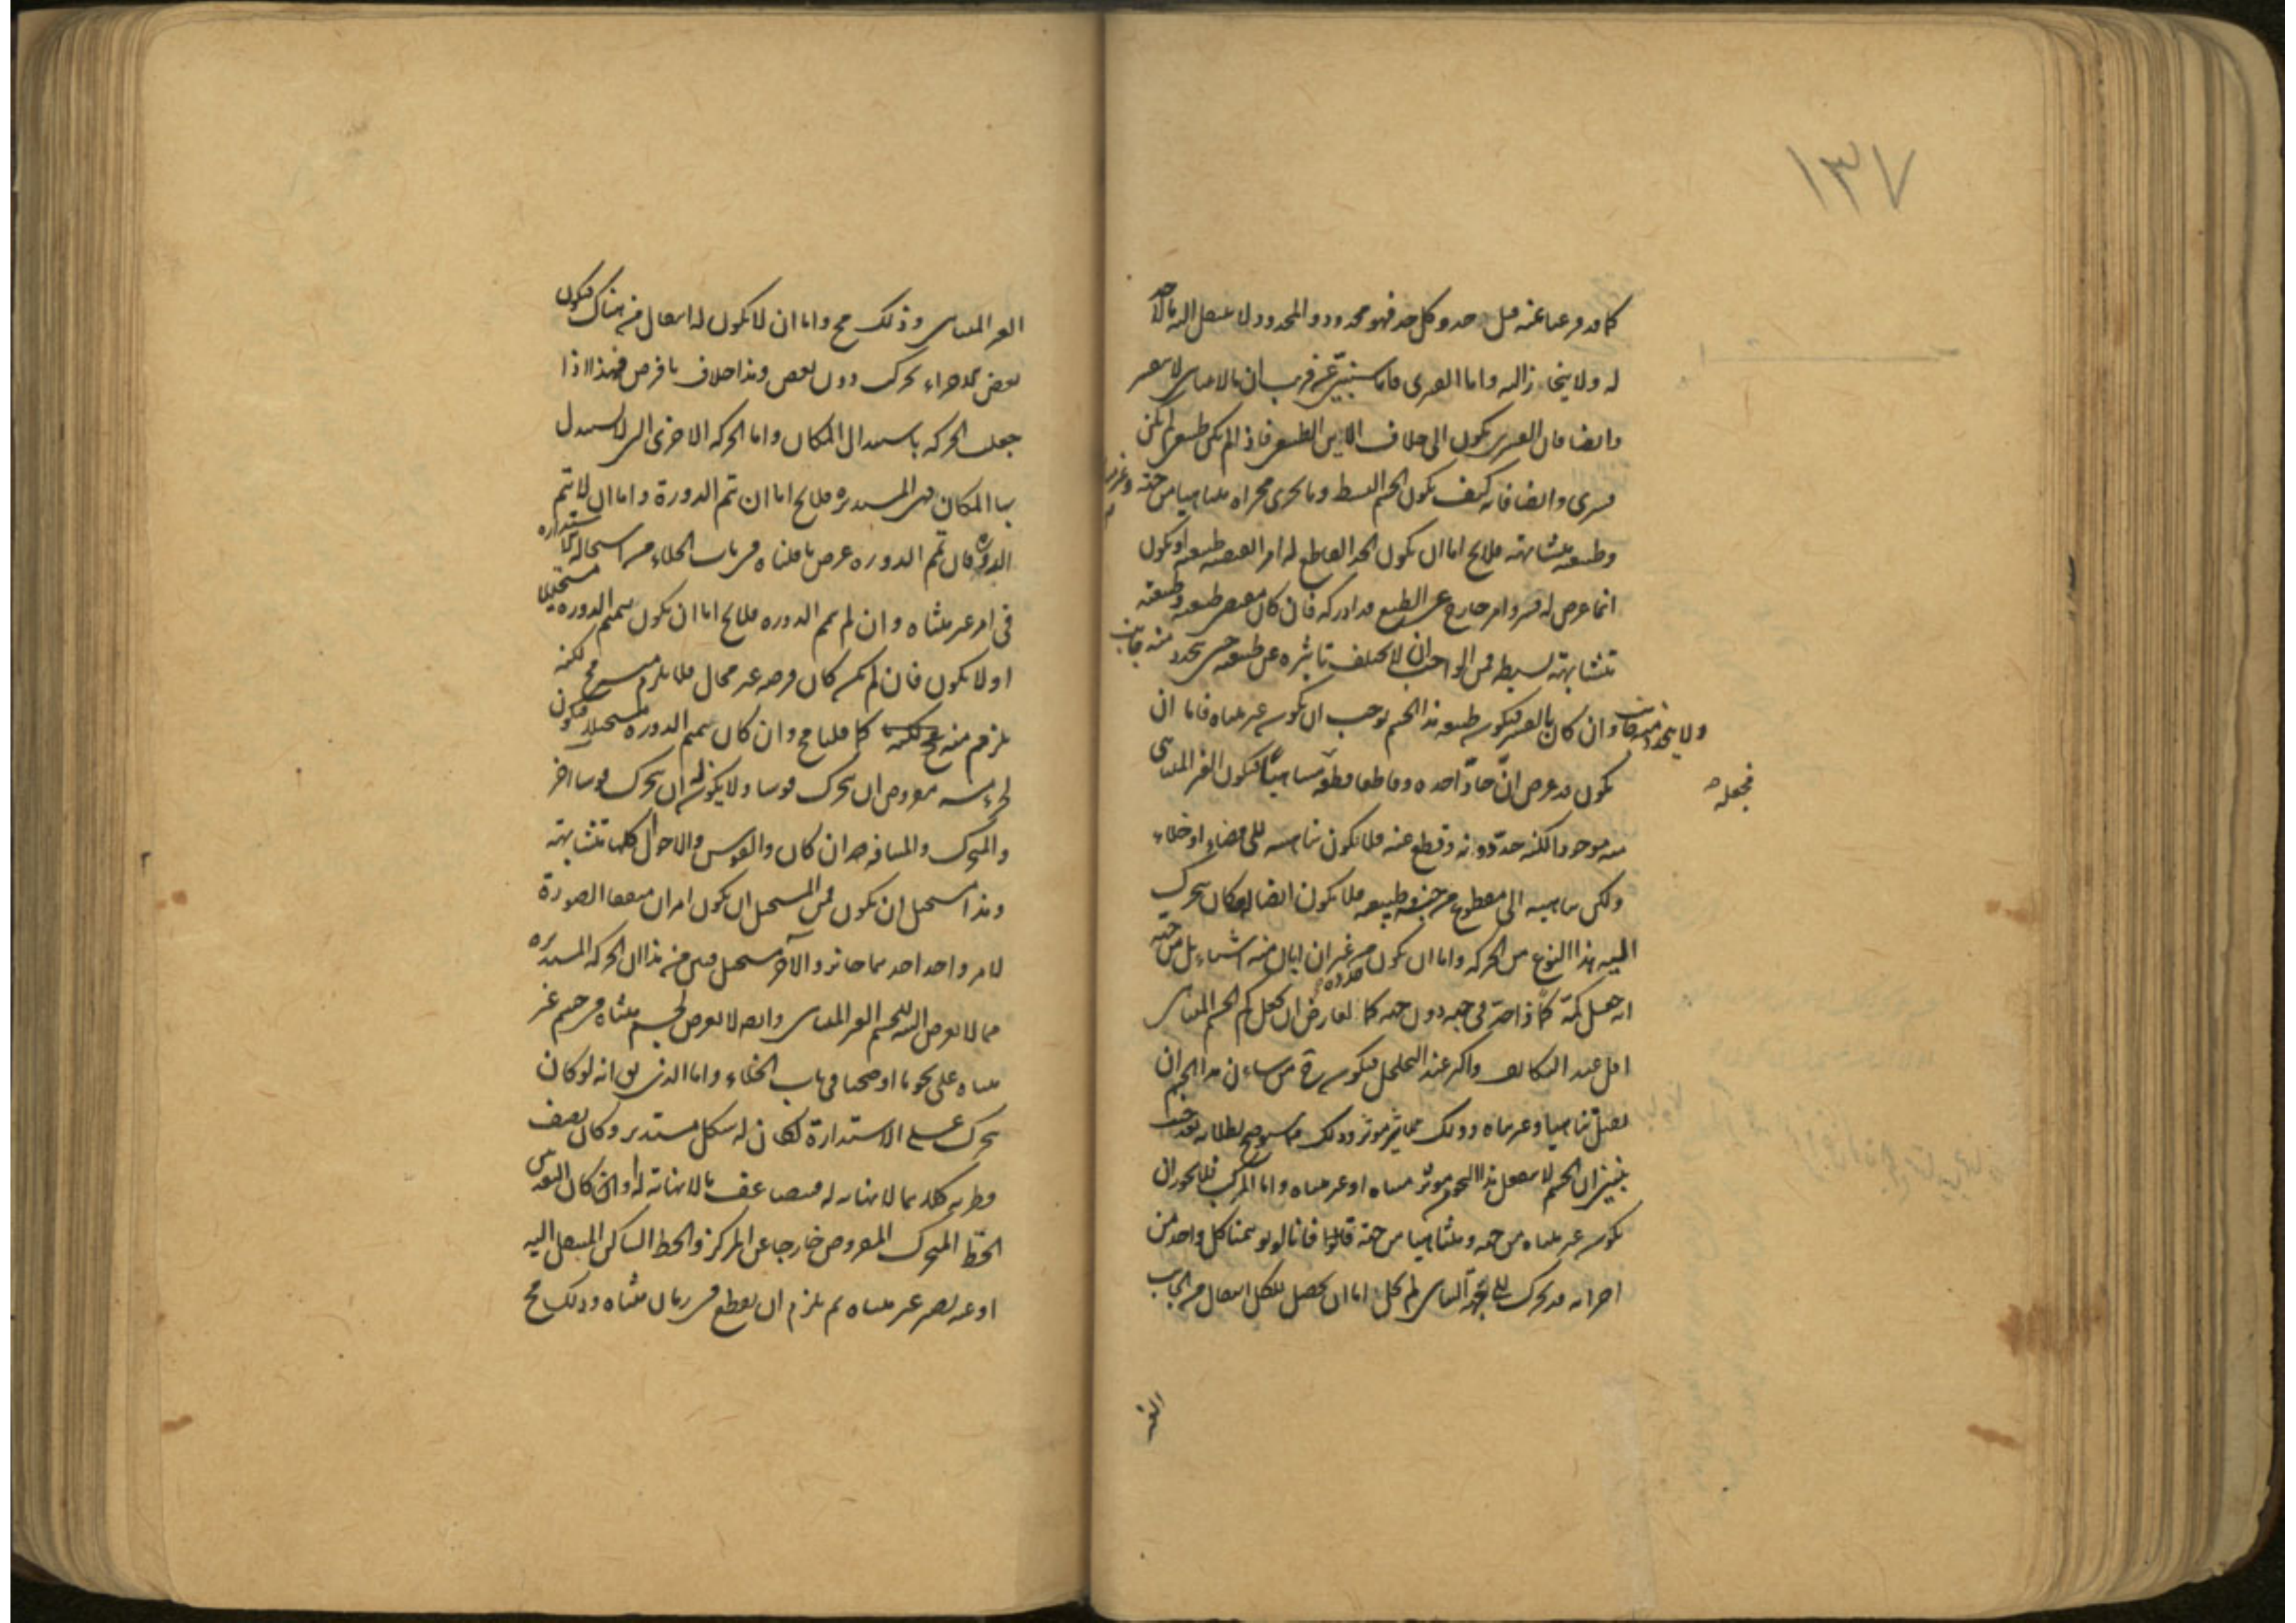 ١٣٧
كما قد فرغنا عنه قبل حد وكل حد فهو محدود والمحدود لا ينتقل اليه بالا
له ولا ينحاز اليه واما القسرى فانا سنبين عن قريب ان مالا يتناهى لا ينقسر
وايضا فان القسرى يكون الى خلاف الاين الطبيعى فاذا لم يكن طبيعى لم يكن
قسرى وايضا فانه كيف يكون الجسم البسيط وما يجرى مجراه متناهيا من جهة وغير
وطبيعته متشابهة فلا يخ اما ان يكون الحد القاطع له امرا يقتضيه طبيعته او يكون
انما عرض له قسرا وامر خارج عن الطبع قد ادركه فان كان مقتضى طبيعته وطبيعته
متشابهة بسيطة فمن الواجب ان لا يختلف تاثيره عن طبيعته حتى يتحدد منه جانب
ولا يتحدد منه جانب وان كان بالقسر فيكون طبيعة هذا الجسم توجب ان يكون غير متناه فاما ان
يكون قد عرض ان حادا حده وقاطعا قطعه متناهيا فيكون الغير المتناهى
فجعله
منه موجودا لكنه حدد دونه وقطع عنه فلا يكون تناهيه الى فضاء او خلاء
ولكن تناهيه الى مقطوع من جنسه وطبيعته فلا يكون ايضا له مكان يتحرك
اليه هذا النوع من الحركة واما ان يكون من غير ان ابان منه شيئا بل من جهة
انه جعل كمه كما ذا حد فى جهة دون جهة كما يعرض ان يجعل كم الجسم المتناهى
اقل عند التكاثف واكبر عند التخلخل فيكون ح من شان هذا الجسم ان
يقبل تناهيا وغير تناه وذلك مما يؤثر مؤثر وذلك مما سيوضح بطلانه بعد حيث
نبين ان الجسم لا ينفعل هذا النحو من مؤثر متناه او غير متناه واما المركب فلا يجوز ان
يكون غير متناه من جهة ومتناهيا من جهة قالوا فانا لو توهمنا كل واحد من
اجزائه قد تحرك الى جهة التناهى لم يخل اما ان يحصل للكل انتقال من الجانب
الغير
الغير المتناهى وذلك مح واما ان لا يكون له انتقال من هناك فيكون
بعض الاجزاء تحرك دون بعض وهذا خلاف ما فرض فهذا اذا
جعلت الحركة باستبدال المكان واما الحركة الاخرى التى لا تستبدل
بها المكان فهى المستديرة فلا يخ اما ان تتم الدورة واما ان لا تتم
الدورة فان تتم الدورة عرض ما قلناه فى باب الخلاء من استحالة الاستدارة
فى امر غير متناه وان لم تتم الدورة فلا يخ اما ان يكون تتميم الدورة مستحيلا
او لا يكون فان لم يكن كان فرضه غير محال فلا يلزم منه مح لكنه
يلزم منه كما قلنا مح وان كان تتميم الدورة مستحيلا فيكون
لجزء منه مفروض ان يتحرك قوسا ولا يكون له ان يتحرك قوسا اخر
والمتحرك والمسافة هذان كان والقوس والاحوال كلها متشابهة
وهذا مستحيل ان يكون فمن المستحيل ان يكون امران متفقا الصورة
لامر واحد احدهما جائز والآخر مستحيل فبين من هذا ان الحركة المستديرة
مما لا يعرض البتة للجسم الغير المتناهى وانه لا يعرض لجسم متناه فى جسم غير
متناه على نحو ما اوضحنا فى باب الخلاء واما الذى يق انه لو كان
يتحرك على الاستدارة لكان له شكل مستدير وكان نصف
قطره كله مما لا نهاية له فيضاعف مالا نهاية له وان كان البعد بين
الخط المتحرك المفروض خارجا عن المركز والخط الساكن المنتقل اليه
او عنه يصير غير متناه ثم يلزم ان يقطع فى زمان متناه وذلك مح